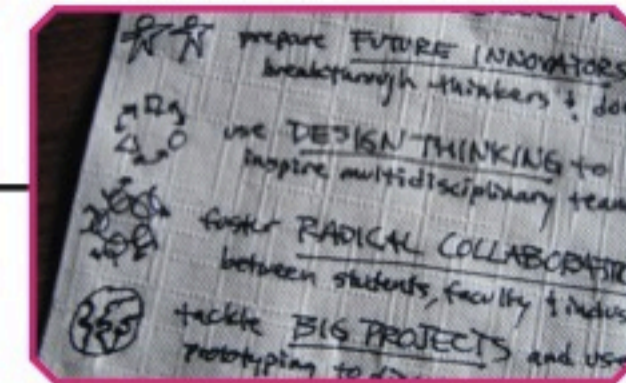 prepare FUTURE INNOVATORS
breakthrough thinkers &
use DESIGN THINKING to
inspire multidisciplinary team
foster RADICAL COLLABORATIO
between students, faculty & indus
tackle BIG PROJECTS and use
prototyping to